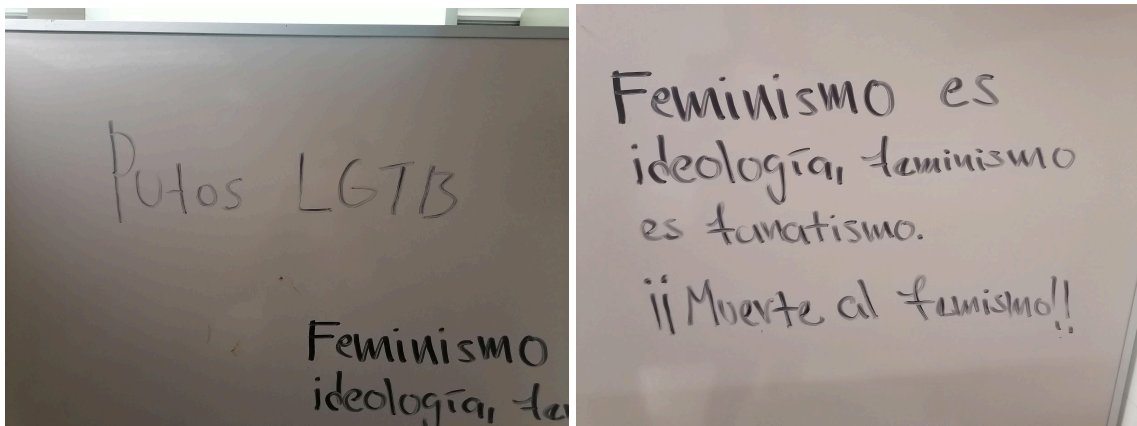 Putos LGTB
Feminismo
ideología,
Feminismo es
ideología, feminismo
es fanatismo.
¡¡Muerte al femismo!!